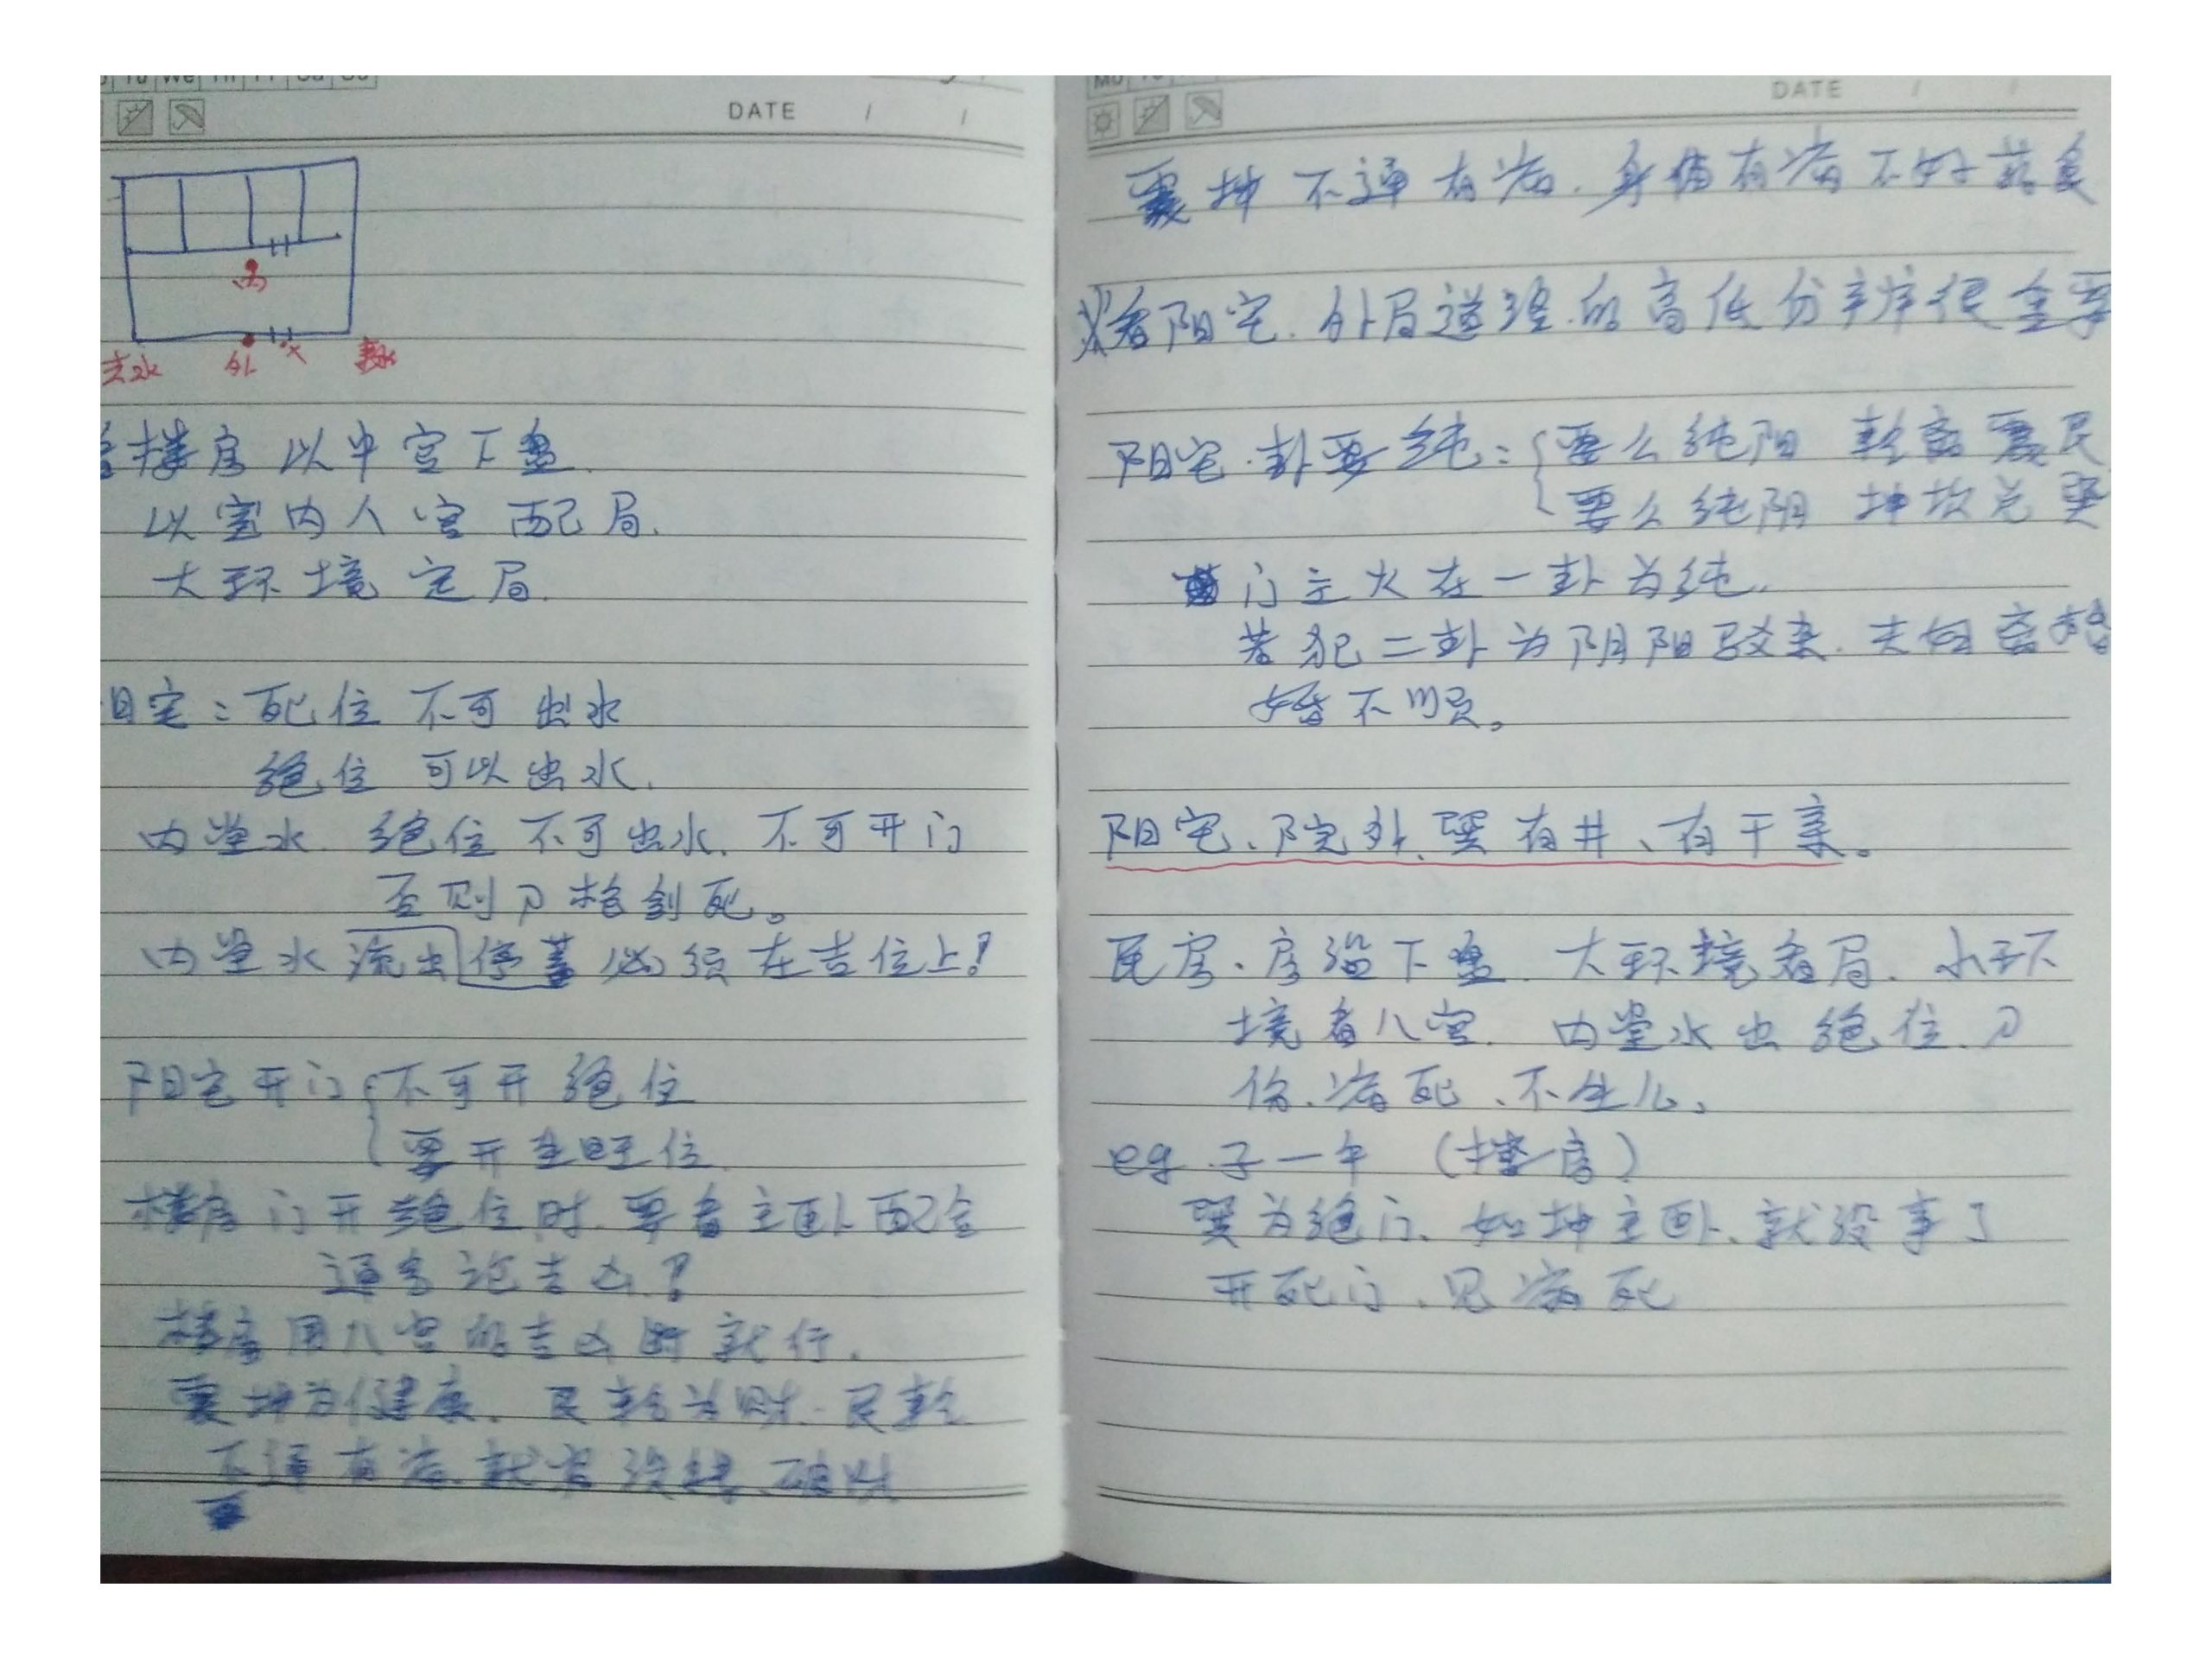 Tu We Th Fr Sa Su
DATE / /
内
去水 外 × 来水
看楼房以中宫下盘.
以室内人宫配局.
大环境定局.
阳宅：死位不可出水
绝位可以出水.
内堂水.绝位不可出水.不可开门
否则刀枪刽死。
内堂水流出停蓄必须在吉位上！
阳宅开门{不可开绝位
要开生旺位.
楼房门开绝位时.要看主卧配合
通否论吉凶！
楼房用八宫的吉凶断就行.
震坤为健康.艮乾为财.艮乾
不通有病.就为没钱、破财
Mo Tu
DATE / /
震坤不通有病.身体有病不好
※看阳宅.外局道路的高低分辨很重要
阳宅.卦要纯：{要么纯阳 乾离震艮
要么纯阴 坤坎兑巽
门主火在一卦为纯.
若犯二卦为阴阳驳杂.夫妇离婚
婚不顺。
阳宅、院外.巽有井、有干亲。
民房、房沿下盘.大环境看局.小环
境看八宫.内堂水出绝位.刀
伤.病死、不生儿、
eg 子一午（楼房）
巽为绝门、如坤主卧、就没事了
开死门、见病死